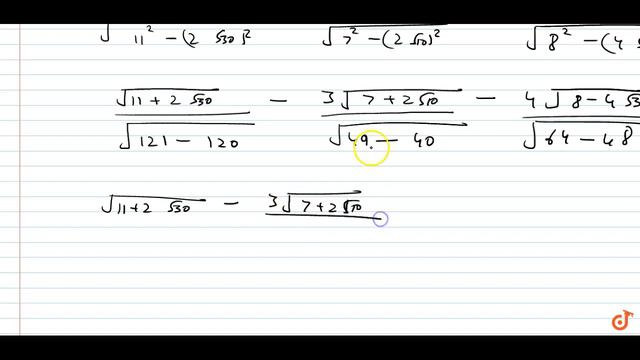 √(11² − (2 √30)²) √(7² − (2 √10)²) √(8² − (4
√(11 + 2 √30) / √(121 − 120) − 3√(7 + 2√10) / √(49 − 40) − 4√(8 − 4 √3 / √(64 − 48
√(11 + 2 √30) − 3√(7 + 2√10)